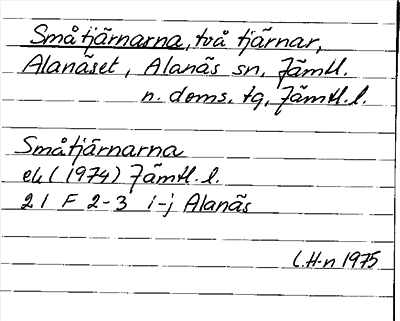 Småtjärnarna, två tjärnar,
Alanäset, Alanäs sn, Jämtl.
n. doms. tg, Jämtl.l.
Småtjärnarna
ek (1974) Jämtl.l.
21 F 2-3 i-j Alanäs
C.H-n 1975